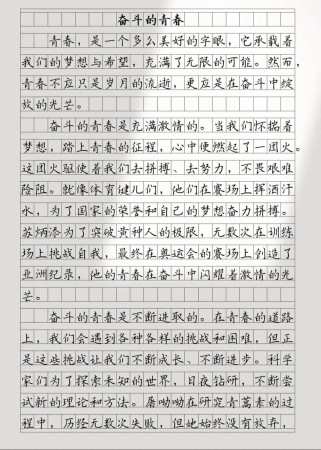 奋斗的青春
青春，是一个多么美好的字眼，它承载着
我们的梦想与希望，充满了无限的可能。然而，
青春不应只是岁月的流逝，更应是在奋斗中绽
放的光芒。
奋斗的青春是充满激情的。当我们怀揣着
梦想，踏上青春的征程，心中便燃起了一团火。
这团火驱使着我们去拼搏、去努力，不畏艰难
险阻。就像体育健儿们，他们在赛场上挥洒汗
水，为了国家的荣誉和自己的梦想奋力拼搏。
苏炳添为了突破黄种人的极限，无数次在训练
场上挑战自我，最终在奥运会的赛场上创造了
亚洲纪录，他的青春在奋斗中闪耀着激情的光
芒。
奋斗的青春是不断进取的。在青春的道路
上，我们会遇到各种各样的挑战和困难，但正
是这些挑战让我们不断成长、不断进步。科学
家们为了探索未知的世界，日夜钻研，不断尝
试新的理论和方法。屠呦呦在研究青蒿素的过
程中，历经无数次失败，但她始终没有放弃，